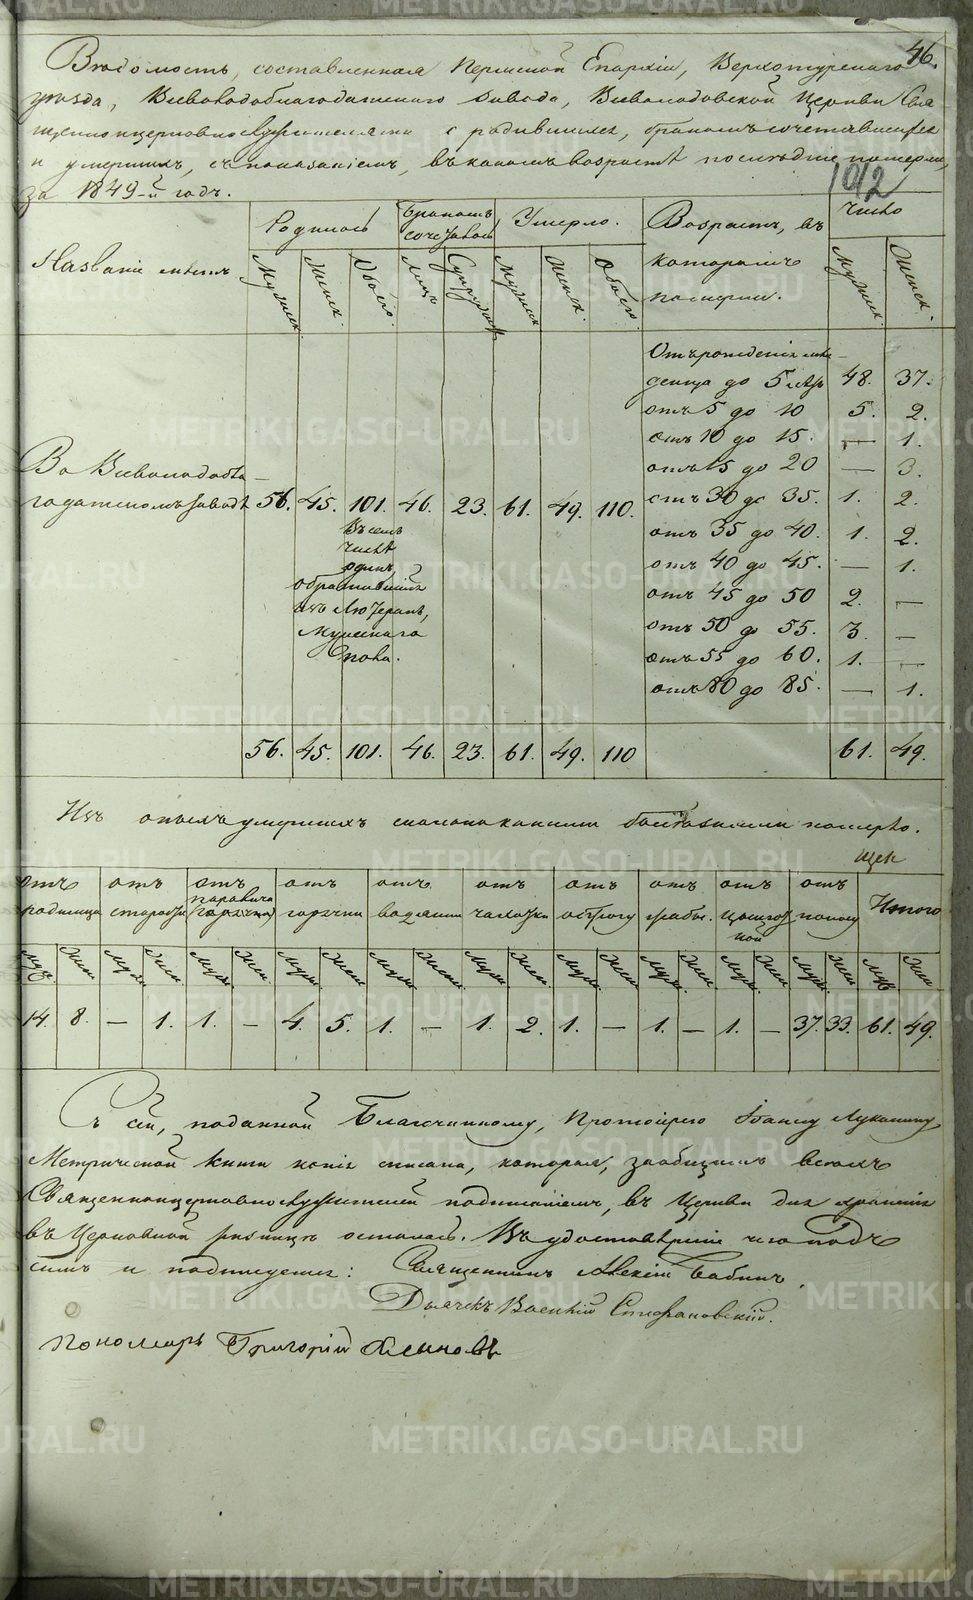 46.
Вѣдомость, составленная Пермской Епархіи, Верхотурскаго
уѣзда, Всеволодоблагодатскаго завода, Всеволодовской Церкви Свя
щенноцерковнослужителями о родившихся, бракомъ сочетавшихся
и умершихъ, съ показаніемъ, въ какомъ возрастѣ послѣдніе померли,
за 1849-й годъ.
1012
Названіе мѣстъ
Родилось
Бракомъ сочеталось
Умерло.
Возрастъ, въ которомъ померли.
Число
Мужск. Женск. Обоего. Лицъ Супружествъ Мужск. Женск. Обоего. Мужск. Женск.
Отъ рожденія мла-
денца до 5 лѣтъ 48. 37.
отъ 5 до 10 5. 2.
отъ 10 до 15. — 1.
отъ 15 до 20 — 3.
отъ 30 до 35. 1. 2.
отъ 35 до 40. 1. 2.
отъ 40 до 45. — 1.
отъ 45 до 50 2. —
отъ 50 до 55. 3. —
отъ 55 до 60. 1. —
отъ 80 до 85. — 1.
Во Всеволодобла-
годатскомъ заводѣ 56. 45. 101. 46. 23. 61. 49. 110.
Въ семъ
числѣ
одинъ
обратившійся
изъ Лютеранъ,
Мужескаго
пола.
56. 45. 101. 46. 23. 61. 49. 110 61. 49.
Изъ оныхъ умершихъ сколько какими болѣзнями померло.
отъ родимца
отъ старости
отъ паралича (горячка)
отъ горячки
отъ водянки
отъ чахотки
отъ
отъ
отъ
отъ поносу
Итого
Муж. Жен. Муж. Жен. Муж. Жен. Муж. Жен. Муж. Жен. Муж. Жен. Муж. Жен. Муж. Жен. Муж. Жен. Муж. Жен. Муж. Жен.
14. 8. — 1. 1. — 4. 5. 1. — 1. 2. 1. — 1. — 1. — 37. 33. 61. 49.
Съ сей, поданной Благочинному, Протоіерею Іоанну Луканину,
Метрической Книги копія списана, которая, за общимъ всѣхъ
Священноцерковнослужителей подписаніемъ, въ Церкви для храненія
въ Церковной ризницѣ осталась. Въ удостовѣреніе чего подъ
симъ и подписуемся: Священникъ Алексій Бабинъ.
Дьячекъ Василій Стефановскій.
Пономарь Григорій
METRIKI.GASO-URAL.RU